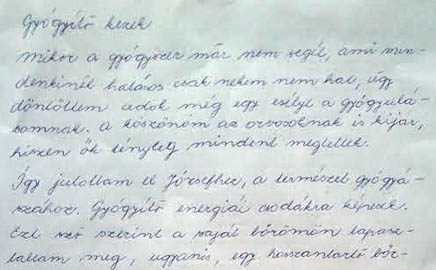 Gyógyító kezek
Mikor a gyógyszer már nem segít, ami min-
denkinél hatásos csak nekem nem hat, úgy
döntöttem adok még egy esélyt a gyógyulá-
somnak. A köszönöm az orvosoknak is kijár,
hiszen ők tényleg mindent megtettek.
Így jutottam el Józsefhez, a természet gyógyá-
szához. Gyógyító energiái csodákra képesek.
Ezt szó szerint a saját bőrömön tapasz-
taltam meg, ugyanis, egy hosszantartó bőr-